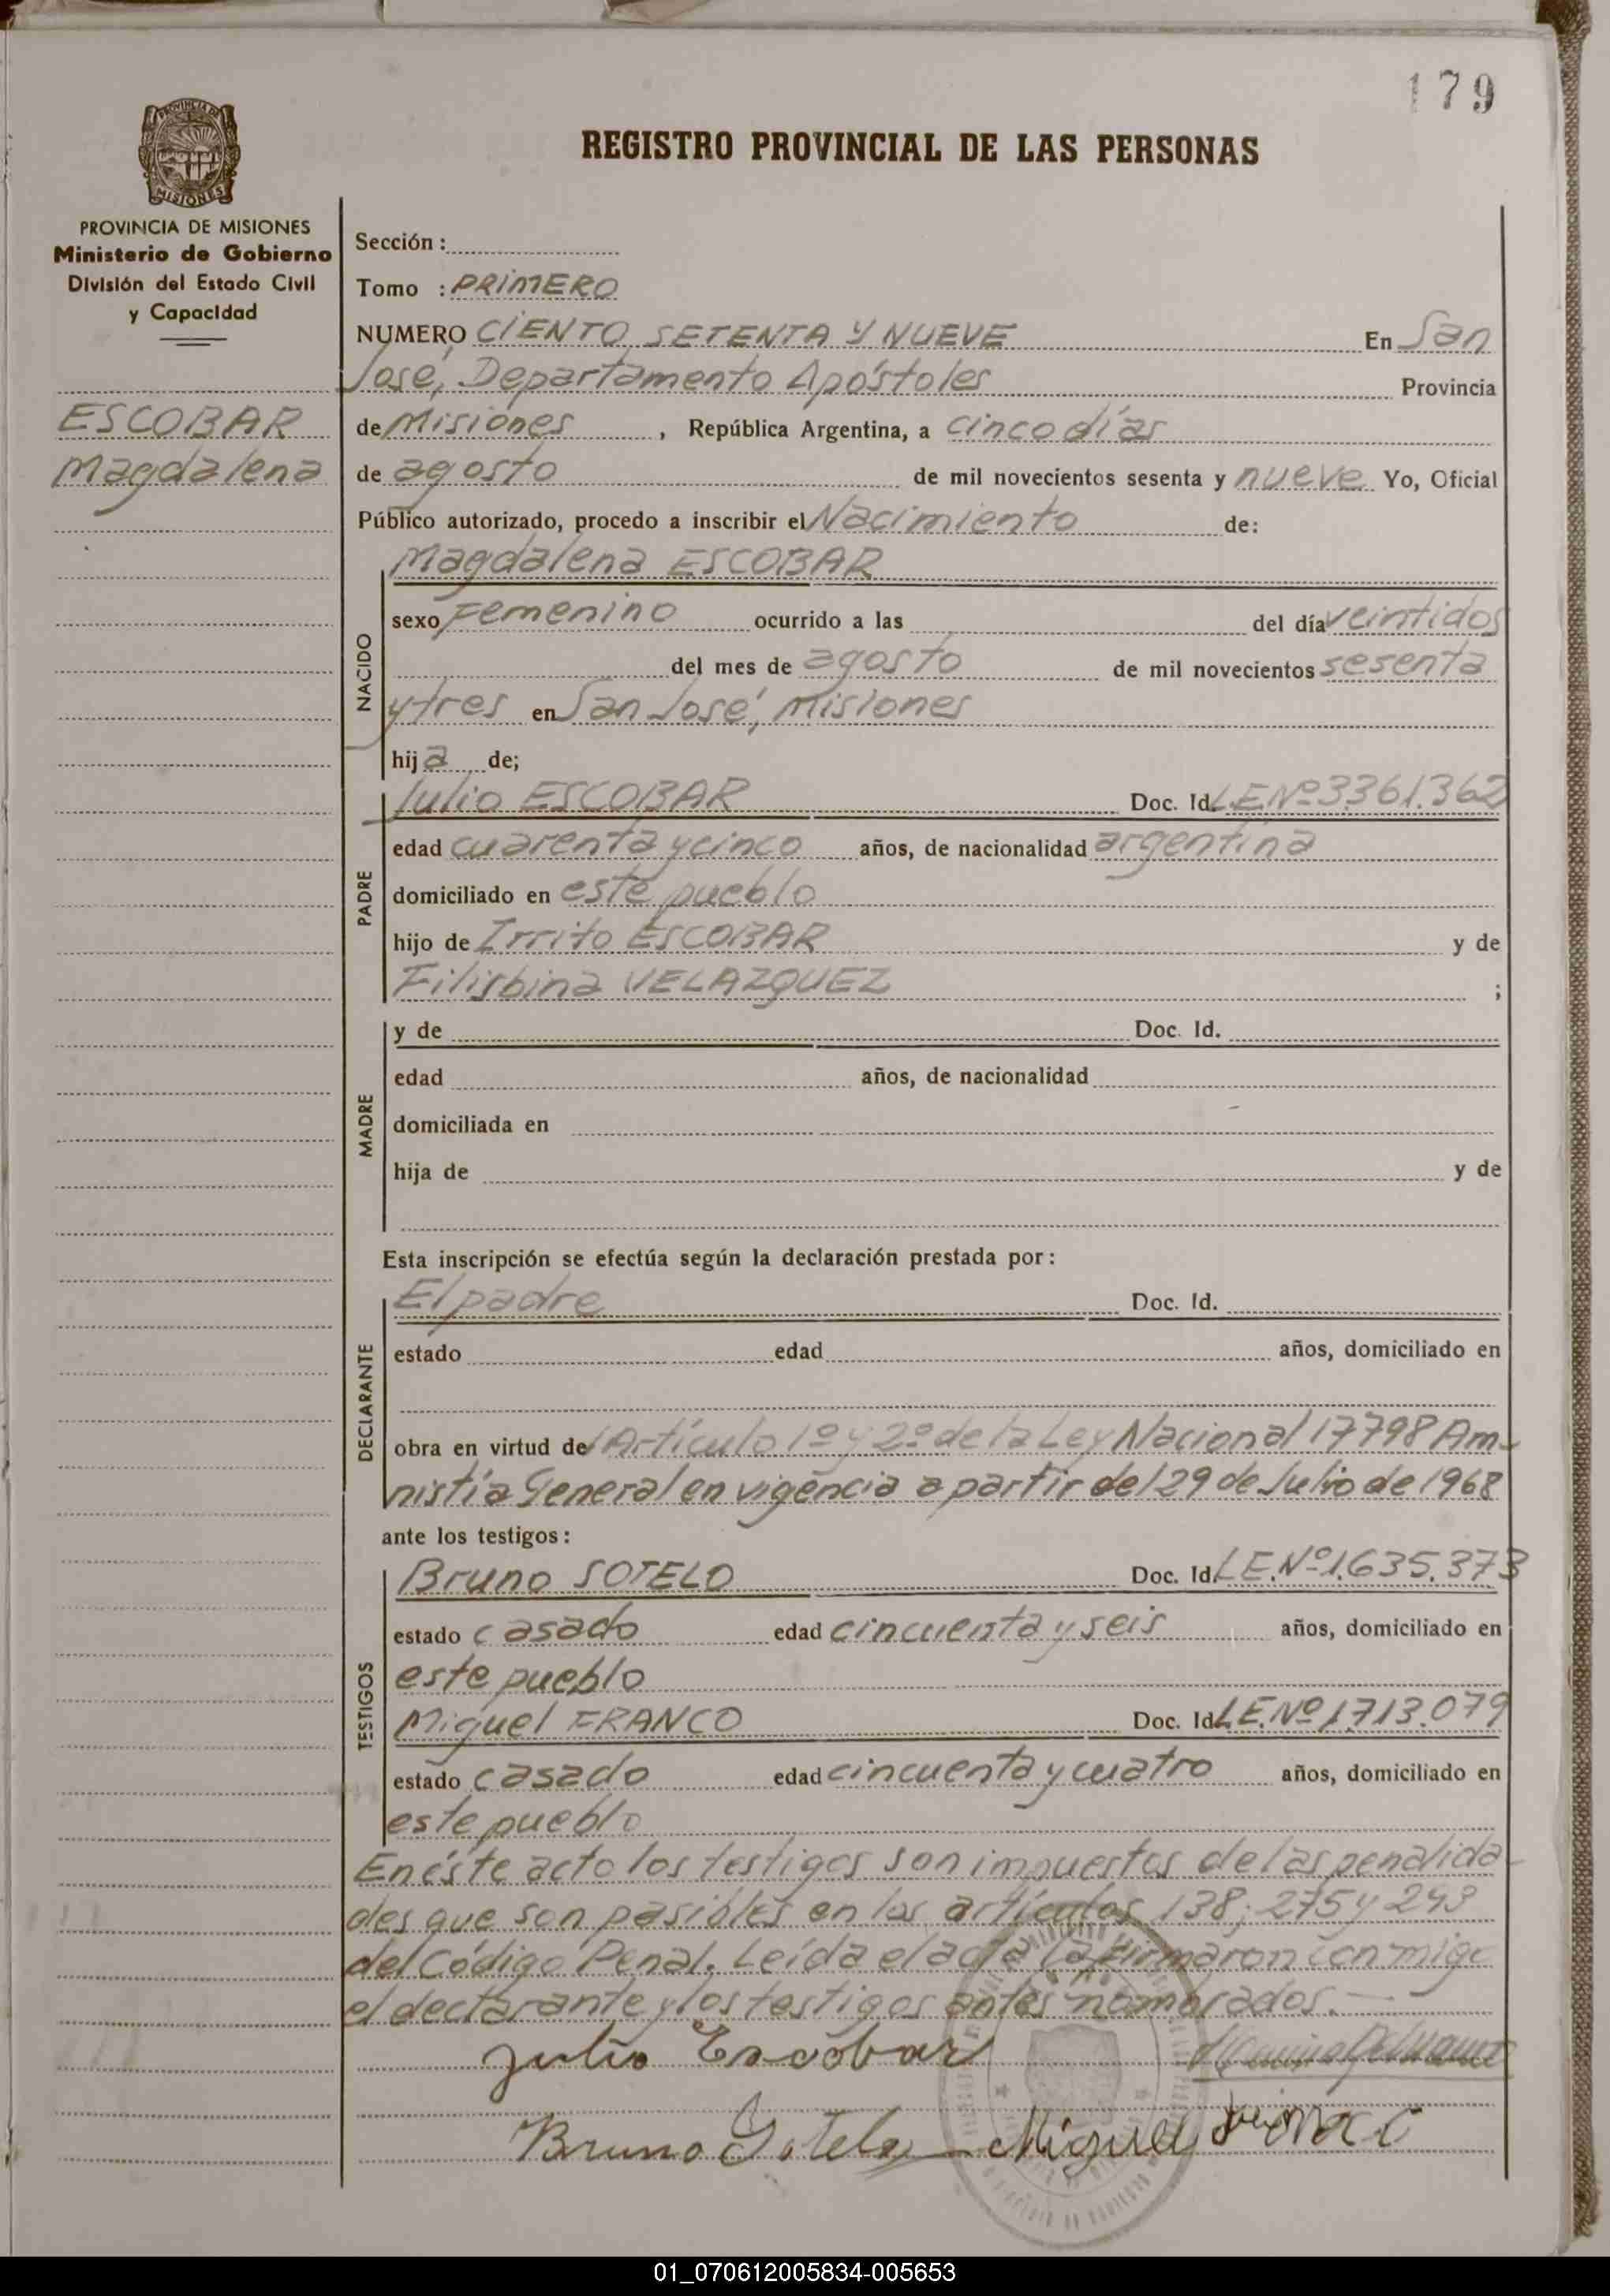 179
PROVINCIA DE MISIONES
REGISTRO PROVINCIAL DE LAS PERSONAS
PROVINCIA DE MISIONES
Ministerio de Gobierno
División del Estado Civil
y Capacidad
ESCOBAR
Magdalena
Sección :
Tomo : PRIMERO
NUMERO CIENTO SETENTA Y NUEVE En San
José, Departamento Apóstoles Provincia
de Misiones , República Argentina, a cinco días
de agosto de mil novecientos sesenta y nueve Yo, Oficial
Público autorizado, procedo a inscribir el Nacimiento de:
NACIDO
Magdalena ESCOBAR
sexo Femenino ocurrido a las del día veintidos
del mes de agosto de mil novecientos sesenta
y tres en San José, Misiones
hija de;
PADRE
Julio ESCOBAR Doc. Id. L.E.Nº3.361.362
edad cuarenta y cinco años, de nacionalidad argentina
domiciliado en este pueblo
hijo de Irrito ESCOBAR y de
Filisbina VELAZQUEZ ;
MADRE
y de Doc. Id.
edad años, de nacionalidad
domiciliada en
hija de y de
Esta inscripción se efectúa según la declaración prestada por:
DECLARANTE
El padre Doc. Id.
estado edad años, domiciliado en
obra en virtud de Artículo 1º y 2º de la Ley Nacional 17798 Am-
nistía General en vigencia a partir del 29 de Julio de 1968
ante los testigos:
TESTIGOS
Bruno SOTELO Doc. Id. L.E.Nº1.635.373
estado casado edad cincuenta y seis años, domiciliado en
este pueblo
Miguel FRANCO Doc. Id. L.E.Nº1.713.079
estado casado edad cincuenta y cuatro años, domiciliado en
este pueblo
En éste acto los testigos son impuestos de las penalida-
des que son pasibles en los artículos 138; 275 y 293
del Código Penal. Leída el acta la firmaron conmigo
el declarante y los testigos antes nombrados.-
Julio Escobar
Bruno Sotelo Miguel Franco
01_070612005834-005653